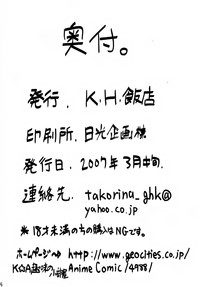 奥付。
発行. K.H.飯店
印刷所. 日光企画様
発行日. 2007年3月中旬.
連絡先. takorina_ghk@
yahoo.co.jp
※18才未満のちの購入はNGです。
ホームページ→ http://www.geocities.co.jp/
Anime Comic/4988/